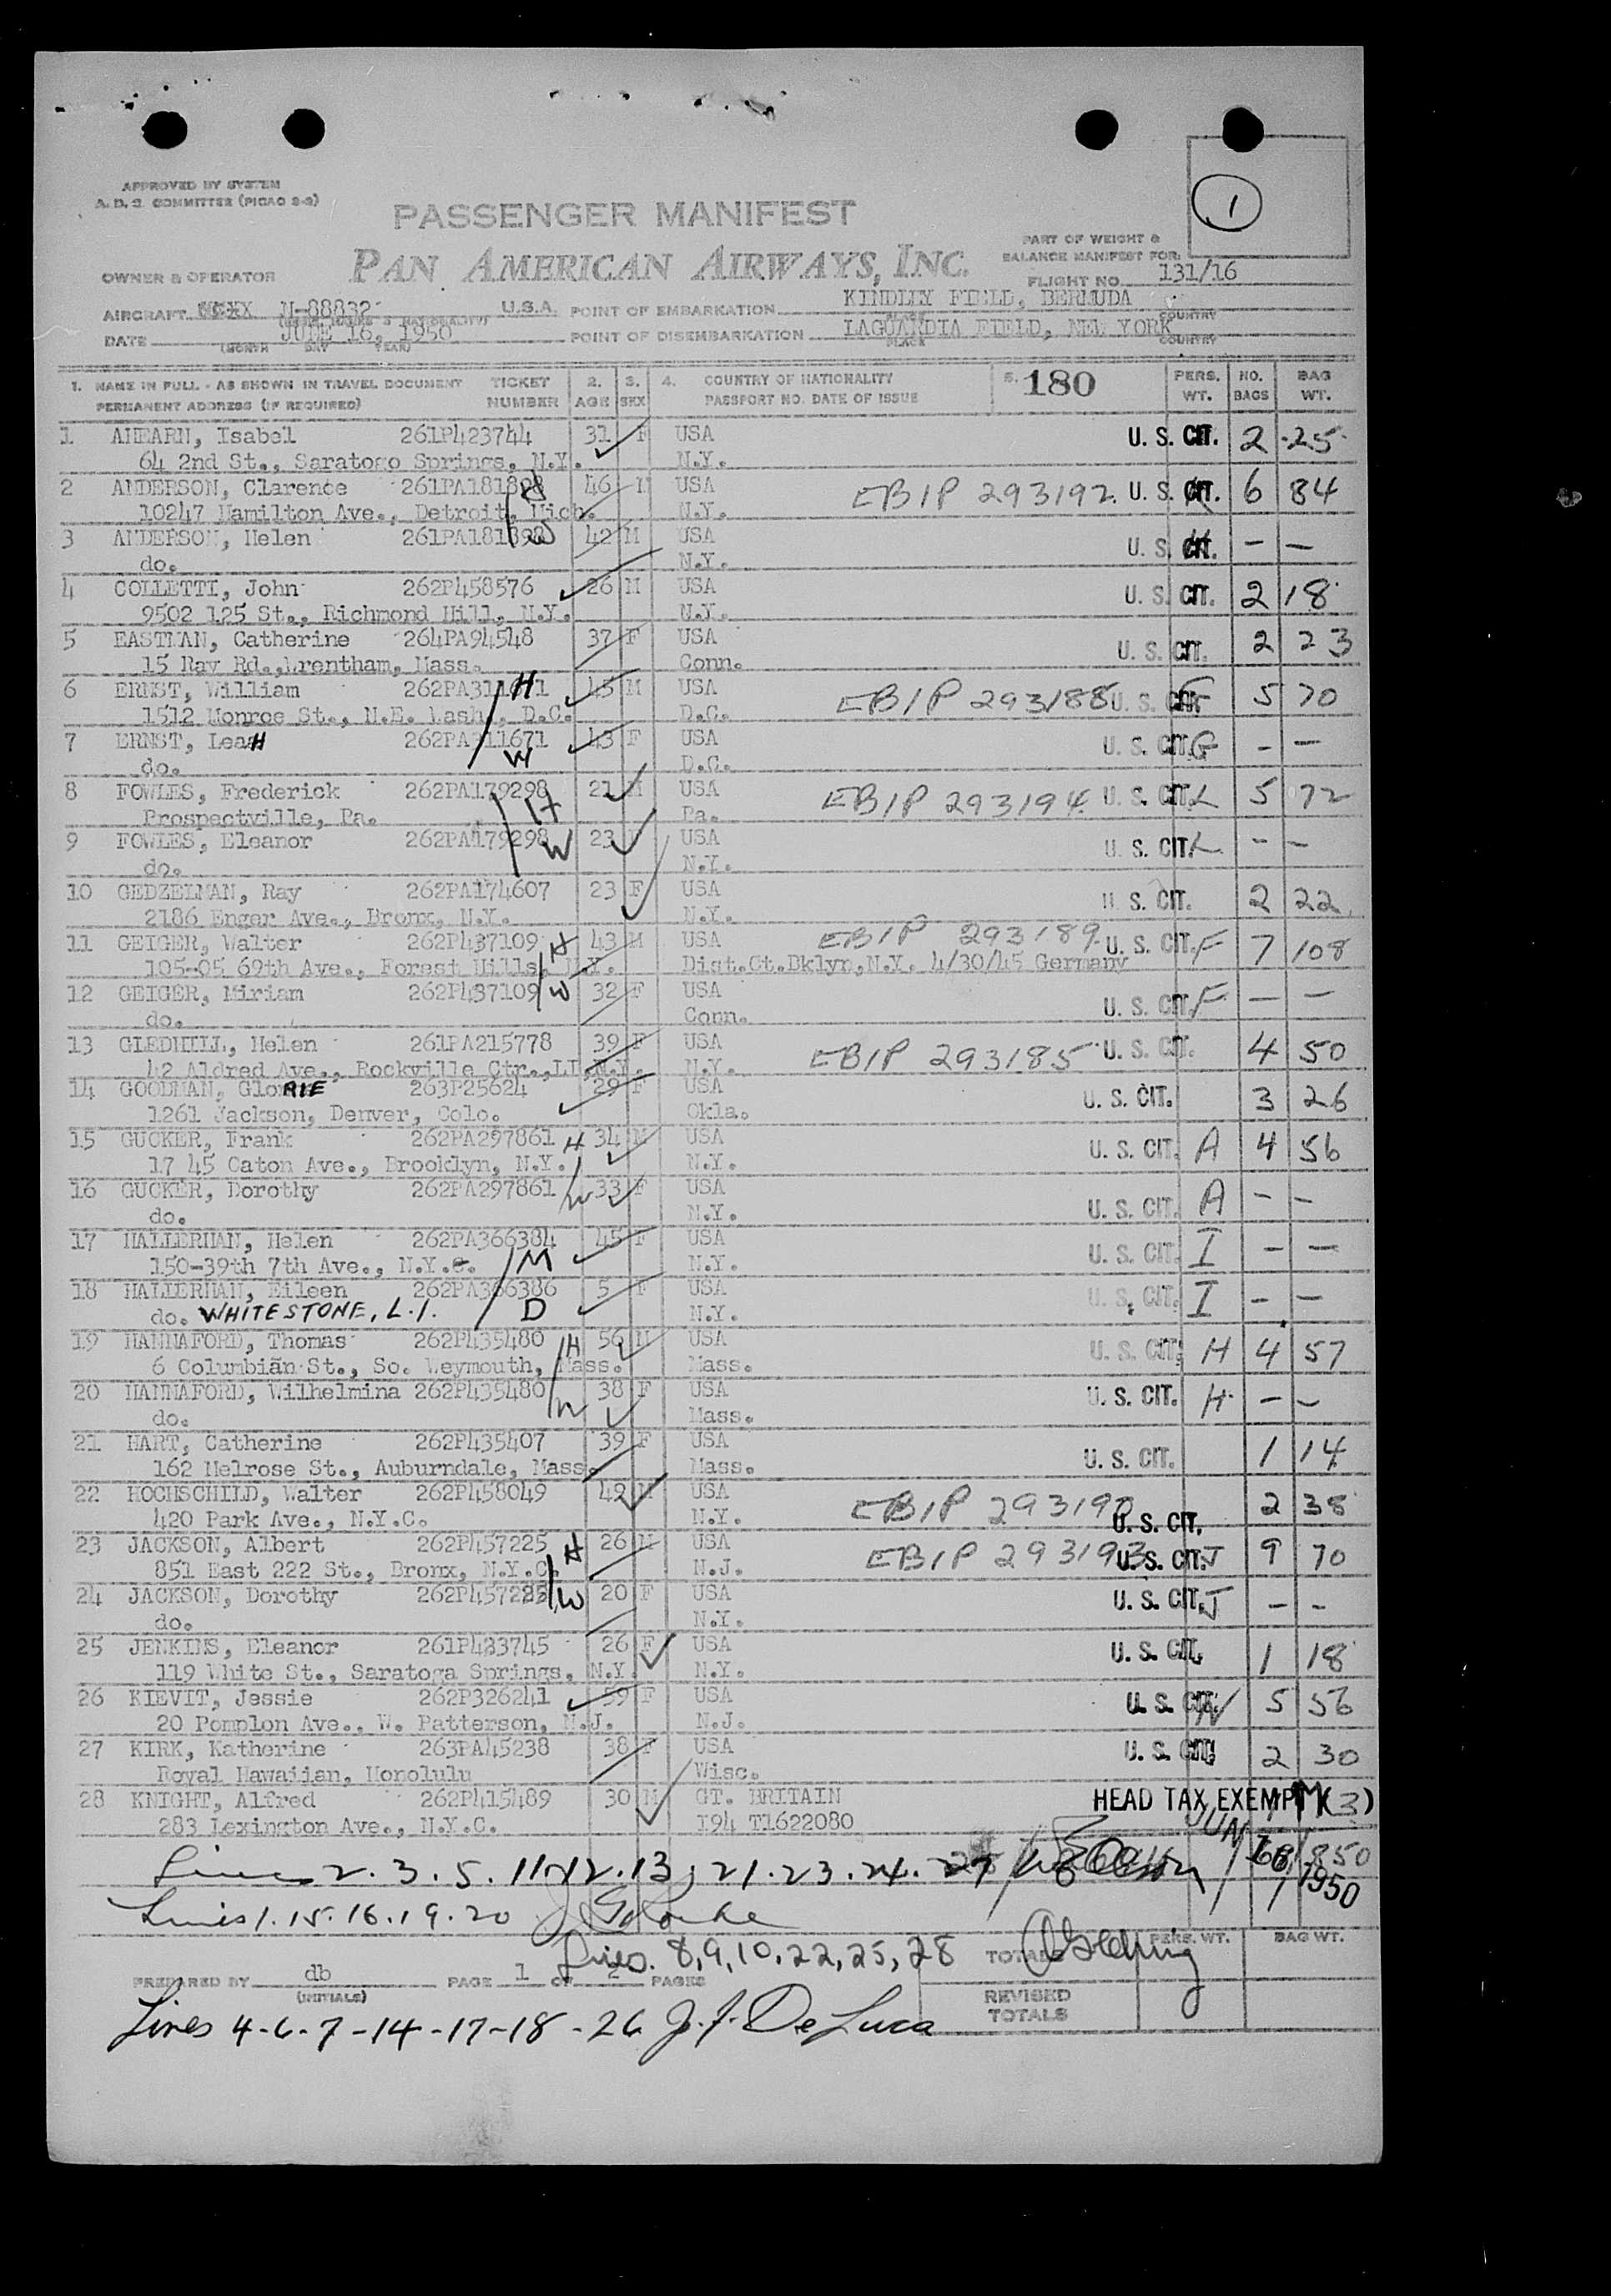 1
APPROVED BY SYSTEM
A. D. S. COMMITTEE (PICAO 2-2)
PASSENGER MANIFEST
PAN AMERICAN AIRWAYS, INC.
PART OF WEIGHT &
BALANCE MANIFEST FOR:
OWNER & OPERATOR
FLIGHT NO. 131/16
AIRCRAFT N-88832 U.S.A. POINT OF EMBARKATION KINDLEY FIELD, BERMUDA
PLACE COUNTRY
DATE JUNE 16, 1950 POINT OF DISEMBARKATION LAGUARDIA FIELD, NEW YORK
(MONTH DAY YEAR) PLACE COUNTRY
1. NAME IN FULL - AS SHOWN IN TRAVEL DOCUMENT TICKET 2. 3. 4. COUNTRY OF NATIONALITY 5. 180 PERS. NO. BAG
PERMANENT ADDRESS (IF REQUIRED) NUMBER AGE SEX PASSPORT NO. DATE OF ISSUE WT. BAGS WT.
1 AHEARN, Isabel 261P423744 31 F USA U. S. CIT. 2 25
64 2nd St., Saratogo Springs, N.Y. N.Y.
2 ANDERSON, Clarence 46 M USA EBIP 293192 U. S. CIT. 6 84
10247 Hamilton Ave., Detroit, Mich. N.Y.
3 ANDERSON, Helen W 42 M USA U. S. CIT. - -
do. N.Y.
4 COLLETTI, John 262P458576 26 M USA U. S. CIT. 2 18
9502 125 St., Richmond Hill, N.Y. N.Y.
5 EASTMAN, Catherine 264PA94548 37 F USA U. S. CIT. 2 23
15 Ray Rd., Wrentham, Mass. Conn.
6 ERNST, William H 45 M USA EBIP 293188 U. S. CIT. 5 70
1512 Monroe St., N.E. Wash., D.C. D.C.
7 ERNST, LeaH 262PA311671 W 43 F USA U. S. CIT. G - -
do. D.C.
8 FOWLES, Frederick 262PA179298 H 21 M USA EBIP 293194 U. S. CIT. L 5 72
Prospectville, Pa. Pa.
9 FOWLES, Eleanor 262PA179298 W 23 F USA U. S. CIT. L - -
do. N.Y.
10 GEDZELMAN, Ray 262PA174607 23 F USA U. S. CIT. 2 22
2186 Enger Ave., Bronx, N.Y. N.Y.
11 GEIGER, Walter 262P437109 H 43 M USA EBIP 293189 U. S. CIT. F 7 108
105-05 69th Ave., Forest Hills, N.Y. Dist.Ct.Bklyn,N.Y. 4/30/45 Germany
12 GEIGER, Miriam 262P437109 W 32 F USA U. S. CIT. F - -
do. Conn.
13 GLEDHILL, Helen 261PA215778 39 F USA EBIP 293185 U. S. CIT. 4 50
42 Aldred Ave., Rockville Ctr., LI, N.Y. N.Y.
14 GOODMAN, GloRIE 263P25624 29 F USA U. S. CIT. 3 26
1261 Jackson, Denver, Colo. Okla.
15 GUCKER, Frank 262PA297861 H 34 M USA U. S. CIT. A 4 56
17 45 Caton Ave., Brooklyn, N.Y. N.Y.
16 GUCKER, Dorothy 262PA297861 W 33 F USA U. S. CIT. A - -
do. N.Y.
17 HALLERMAN, Helen 262PA366384 M 45 F USA U. S. CIT. I - -
150-39th 7th Ave., N.Y. N.Y.
18 HALLERMAN, Eileen 262PA366386 D 5 F USA U. S. CIT. I - -
do. WHITESTONE, L.I. N.Y.
19 HANNAFORD, Thomas 262P435480 H 56 M USA U. S. CIT. H 4 57
6 Columbian St., So. Weymouth, Mass. Mass.
20 HANNAFORD, Wilhelmina 262P435480 W 38 F USA U. S. CIT. H - -
do. Mass.
21 HART, Catherine 262P435407 39 F USA U. S. CIT. 1 14
162 Melrose St., Auburndale, Mass. Mass.
22 HOCHSCHILD, Walter 262P458049 49 M USA EBIP 293190 U. S. CIT. 2 38
420 Park Ave., N.Y.C. N.Y.
23 JACKSON, Albert 262P457225 H 26 M USA EBIP 293193 U. S. CIT. J 9 70
851 East 222 St., Bronx, N.Y.C. N.J.
24 JACKSON, Dorothy 262P457225 W 20 F USA U. S. CIT. J - -
do. N.Y.
25 JENKINS, Eleanor 261P423745 26 F USA U. S. CIT. 1 18
119 White St., Saratoga Springs, N.Y. N.Y.
26 KIEVIT, Jessie 262P326241 59 F USA U. S. CIT. 5 56
20 Pomplon Ave., W. Patterson, N.J. N.J.
27 KIRK, Katherine 263PA45238 38 F USA U. S. CIT. 2 30
Royal Hawaiian, Honolulu Wisc.
28 KNIGHT, Alfred 262P415489 30 M GT. BRITAIN HEAD TAX EXEMPT (3)
283 Lexington Ave., N.Y.C. I94 T1622080
JUN 16 1950
68 850
Lines 2.3.5.11.12.13,21.23.24.27
Lines 1.15.16.19.20
Lines. 8,9,10,22,25,28
TOTALS PERS. WT. BAG WT.
PREPARED BY db PAGE 1 OF 2 PAGES
(INITIALS)
REVISED
TOTALS
Lines 4-6-7-14-17-18-26 J.J. DeLuca